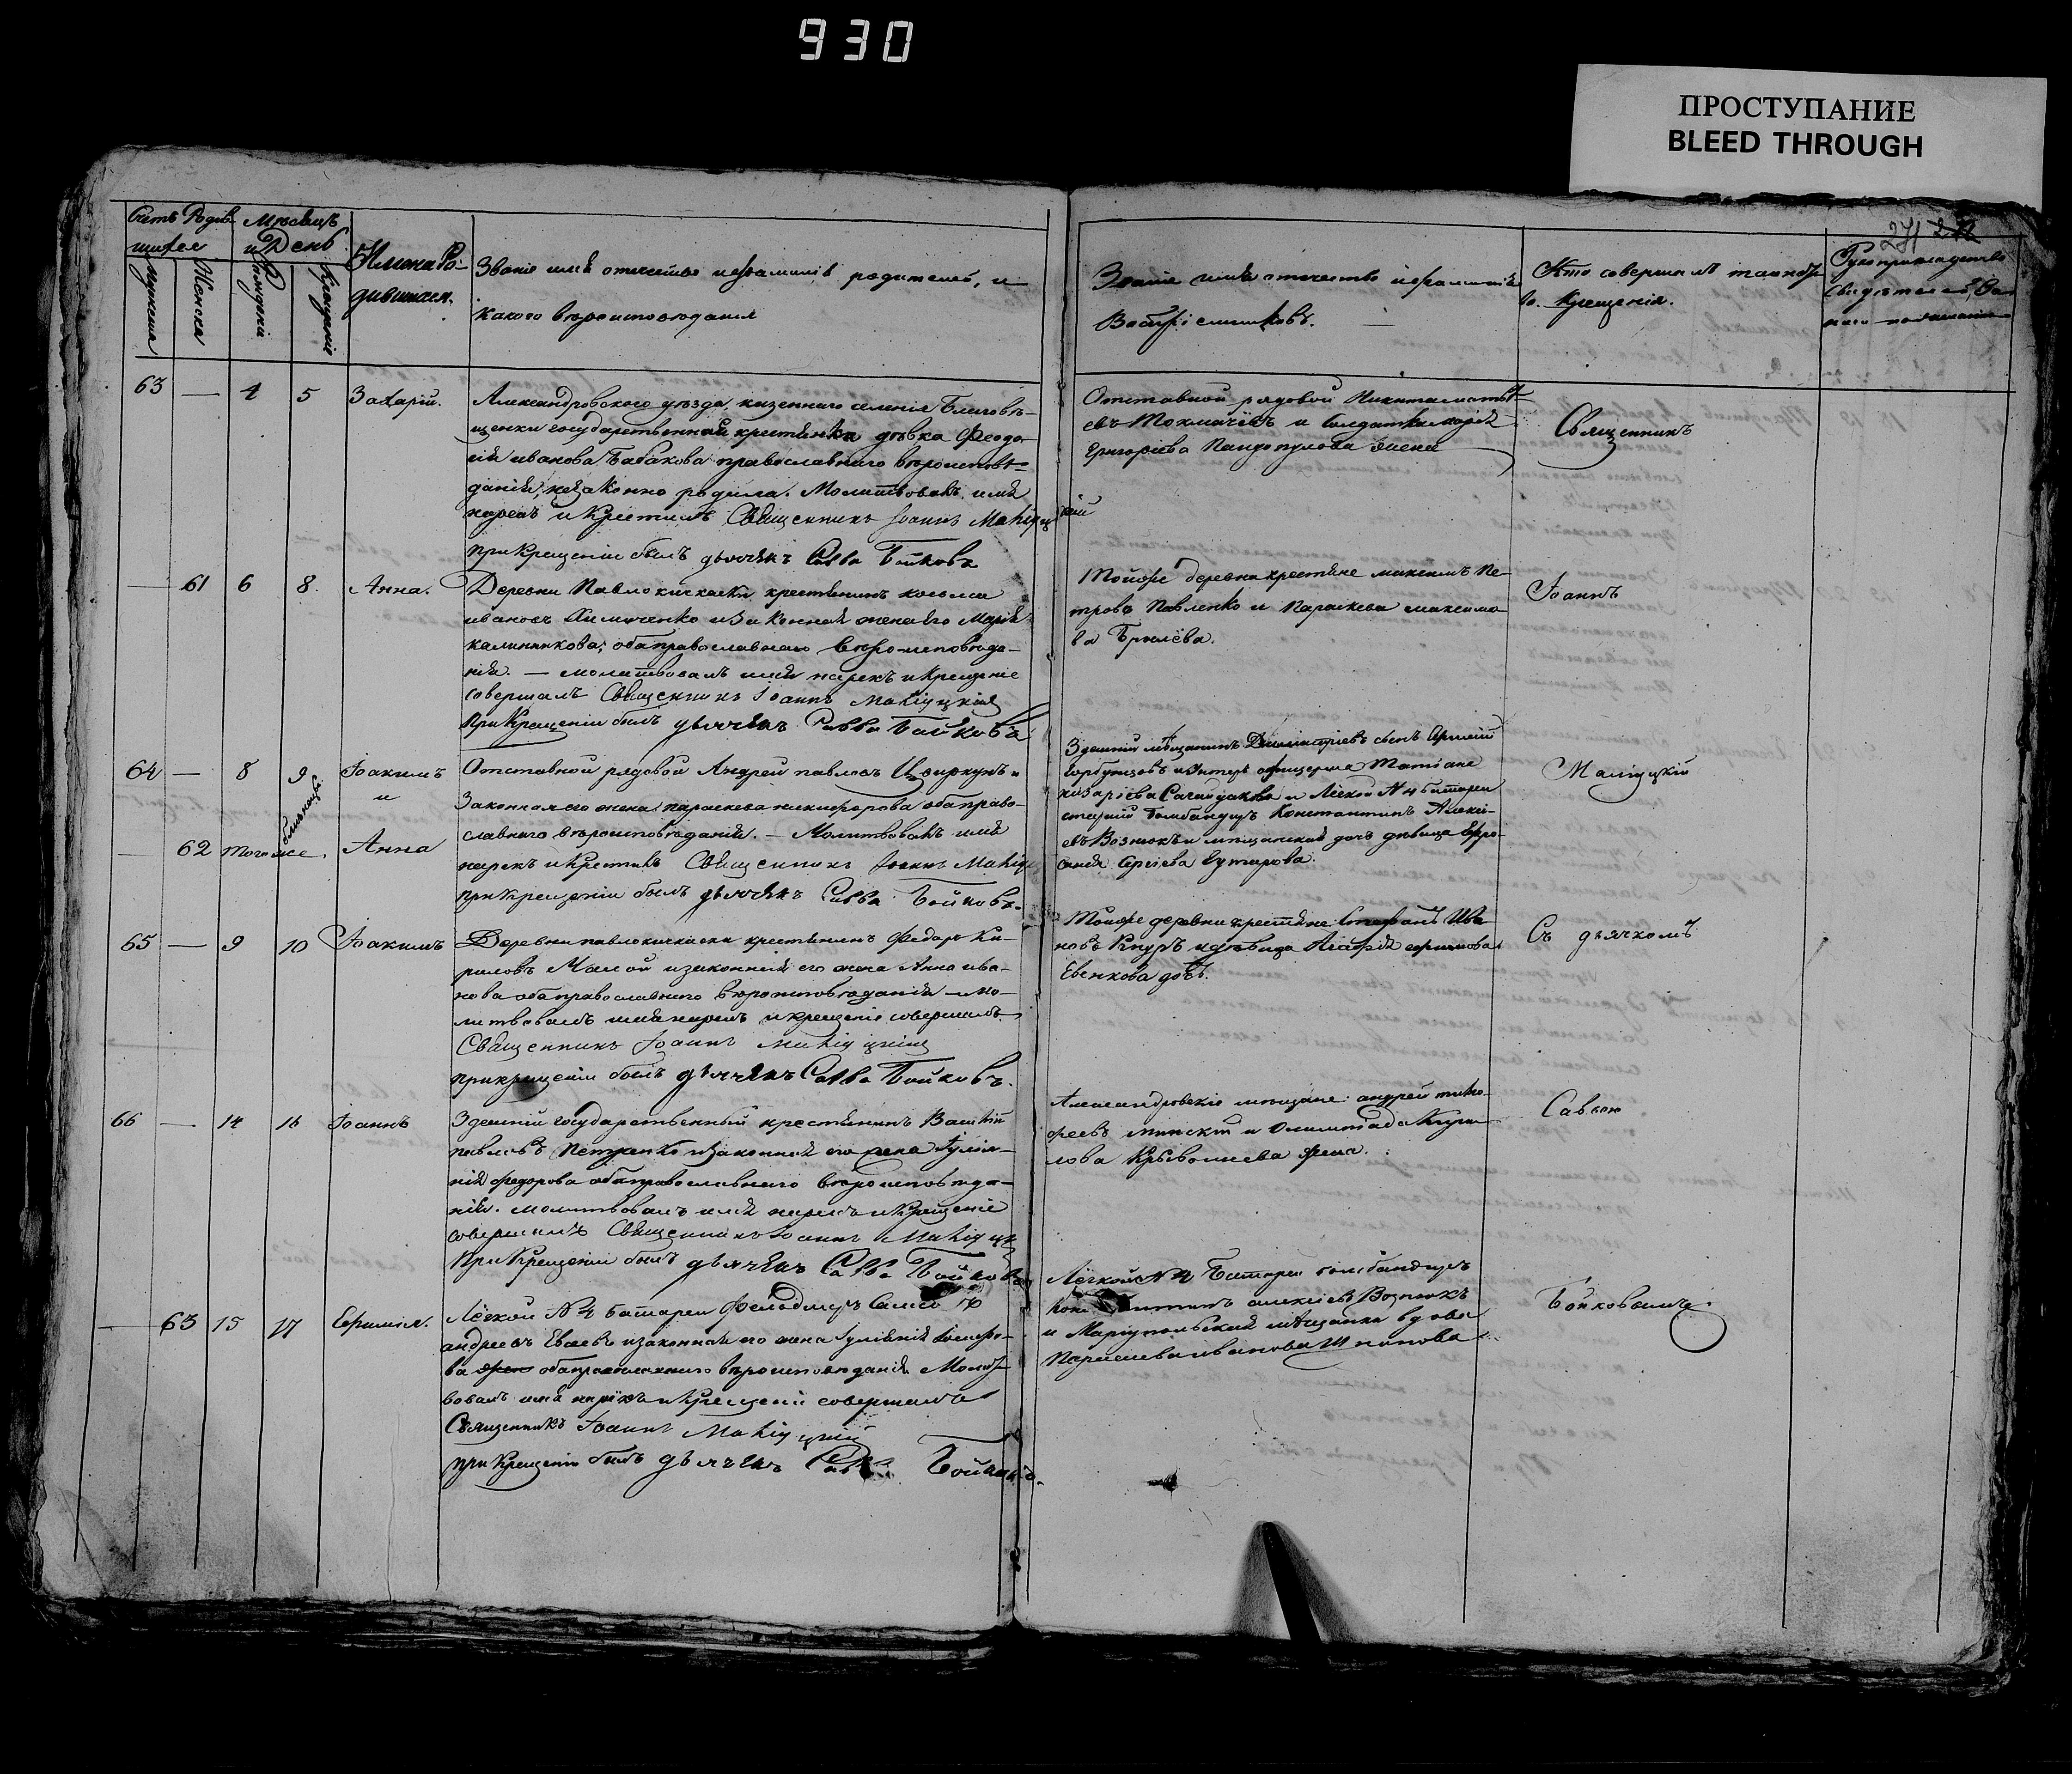 930
ПРОСТУПАНИЕ
BLEED THROUGH
271
Счетъ Родив-
шихся
Мѣсяцъ
и День
Имена Ро-
дившихся.
Званіе имя отчество и фамилія родителей, и
какого вѣроисповѣданія
Женска
Рожденія
Крещенія
Званіе имя отчество и фамилія
Воспріемниковъ.
Кто совершилъ таинст-
во Крещенія.
Рукоприкладство
свидѣтелей
63 — 4 5 Захарій.
Александровскаго уѣзда, казеннаго селенія Благовѣ-
щенки государственная крестьянка дѣвка Феодо-
сія иванова Бабакова православнаго вѣроисповѣ-
данія, незаконно родила. Молитвовалъ имя
нарекъ и крестилъ Священникъ Іоаннъ
при крещеніи былъ дьячекъ Савва Бойковъ
Отставной рядовой Никита
евъ Токмачёвъ и солдатка марія
Григорьева Пандопулова
Священникъ
— 61 6 8. Анна.
Деревни Павлокичкаски крестьянинъ косьма
ивановъ Химиченко и законная жена его Марія
калинникова, оба православнаго вѣроисповѣда-
нія. — молитвовалъ имя нарекъ и Крещеніе
совершалъ Священникъ Іоаннъ
При Крещеніи былъ дьячекъ Савва Бойковъ
Тойже деревни крестьяне максимъ Пе-
тровъ Павленко и Параскева максимо-
ва Брылёва.
Іоаннъ
64 — 8 9 Іоакимъ
и
близнецы
— 62 Тогоже. Анна
Отставной рядовой Андрей павловъ Цвиркунъ и
Законная его жена параскева никифорова оба право-
славнаго вѣроисповѣданія. — Молитвовалъ имя
нарекъ и крестилъ Священникъ Іоаннъ
при крещеніи былъ дьячекъ Савва Бойковъ
Здешній мѣщанинъ
и унтеръ офицерша Татіана
и Лёгкой № 4 батареи
старшій бомбандиръ Константинъ Алексі-
евъ Вознюкъ и мѣщанская дочь дѣвица Евро-
синія Сергіева
65 — 9 10 Іоакимъ
Деревни павлокичкаски крестьянинъ Федоръ Ки-
риловъ Малой и законная его жена Анна ива-
нова оба православнаго вѣроисповѣданія — мо-
литвовалъ имя нарекъ и крещеніе совершалъ
Священникъ Іоаннъ
при крещеніи былъ дьячекъ Савва Бойковъ.
Тойже деревни крестьяне Стефанъ Ива-
новъ и дѣвица Агафія ефимова
Евенкова
Съ дьячкомъ
66 — 14 16 Іоаннъ
Здешній государственный крестьянинъ Василій
павловъ Петренко и законная его жена Іуліа-
нія федорова оба православнаго вѣроисповѣда-
нія. молитвовалъ имя нарекъ и Крещеніе
совершалъ Священникъ Іоаннъ
При Крещеніи былъ дьячекъ Савва Бойковъ
Александровскіе мѣщане: андрей тимо-
феевъ минскій и Олимпіада Кири-
лова
Саввою
— 63 15 17 Ефимія.
Лёгкой № 4 батареи
андреевъ Евсеевъ и законная его жена Іуліанія
ва оба православнаго вѣроисповѣданія Молит-
вовалъ имя нарекъ и Крещеніе совершалъ
Священникъ Іоаннъ
при Крещеніи былъ дьячекъ Савва Бойковъ.
Лёгкой № 4 Батареи бомбандиръ
алексіевъ Вознюкъ
и Маріупольская мѣщанка вдова
Параскева иванова
Бойковымъ.